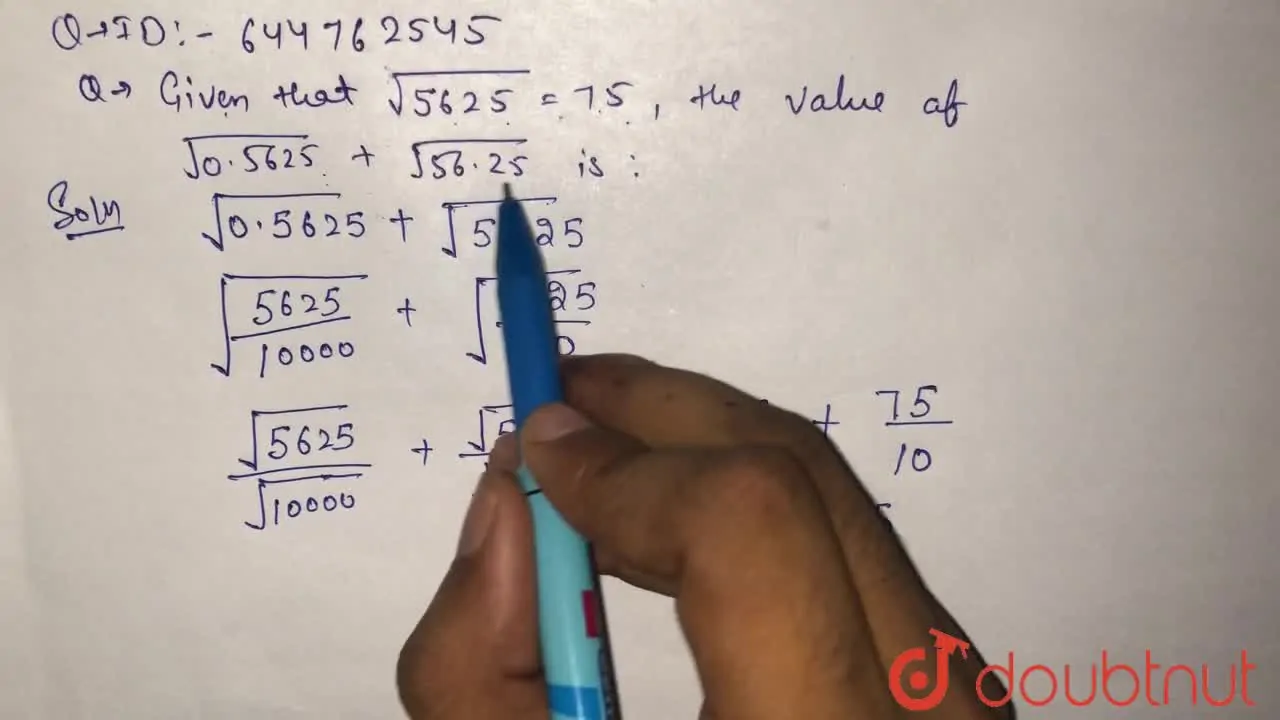 Q→ID:- 644762545
Q→ Given that √5625 = 75, the value of
√0.5625 + √56.25 is :
Soln √0.5625 + √5 25
√5625/10000 + √ 25/ 0
√5625/√10000 + √5 + 75/10
doubtnut